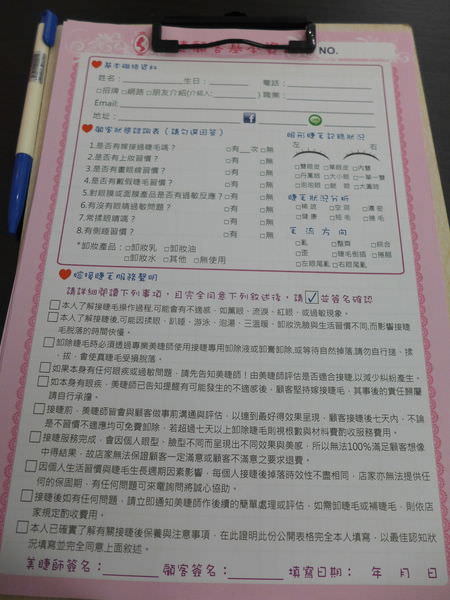 顧客基本資 NO.
基本聯絡資料
姓名： 生日： 電話：
□招牌 □網路 □朋友介紹(介紹人: ) 職業：
Email:
地址：
顧客狀態諮詢表（請勾選回答）
1.是否有嫁接過睫毛嗎？ □有 次 □無
2.是否有上妝習慣？ □有 □無
3.是否有畫眼線習慣？ □有 □無
4.是否有戴假睫毛習慣？ □有 □無
5.對眼膜或面膜產品是否有過敏反應？ □有 □無
6.有沒有眼睛過敏問題？ □有 □無
7.常揉眼睛嗎？ □有 □無
8.有側睡習慣？ □有 □無
*卸妝產品：□卸妝乳 □卸妝油
□卸妝水 □其他 □無使用
眼形睫毛記錄狀況
左 右
□雙眼皮 □單眼皮 □內雙
□丹鳳眼 □大小眼 □一單一雙
□泡泡眼 □眼 □大鳳眼
睫毛狀況分析
□稀疏 □空洞 □濃密
□健康 □短毛 □睫毛
毛流方向
□亂 □豎齊 □綜合
□歪 □睫毛倒插 □捲翹
□左眼尾亂 □右眼尾亂
嫁接睫毛服務聲明
請詳細閱讀下列事項，且完全同意下列敘述後，請☑並簽名確認
□本人了解接睫毛操作過程,可能會有不適感-如薰眼，流淚，紅眼，或過敏現象。
□本人了解接睫後,可能因揉眼、趴睡、游泳、泡湯、三溫暖、卸妝洗臉與生活習慣不同,而影響接睫毛脫落的時間快慢。
□卸除睫毛時必須透過專業美睫師使用接睫專用卸除液或卸膏卸除,或等待自然掉落,請勿自行搓，揉，拔，會使真睫毛受損脫落。
□如果本身有任何眼疾或過敏問題，請先告知美睫師！由美睫師評估是否適合接睫,以減少糾紛產生。
□如本身有眼疾，美睫師已告知提醒有可能發生的不適感後，顧客堅持嫁接睫毛，其事後的責任歸屬請自行承擔。
□接睫前，美睫師皆會與顧客做事前溝通與評估，以達到最好得效果呈現，顧客接睫後七天內，不論是不習慣不適應均可免費卸除，若超過七天以上卸除睫毛則視根數與材料費酌收服務費用。
□接睫服務完成，會因個人眼型、臉型不同而呈現出不同效果與美感，所以無法100%滿足顧客想像中得結果，故店家無法保證顧客一定滿意或顧客不滿意之要求退費。
□因個人生活習慣與睫毛生長週期因素影響，每個人接睫後掉落時效性不盡相同，店家亦無法提供任何的保固期，有任何問題可來電詢問將誠心協助。
□接睫後如有任何問題，請立即通知美睫師作後續的簡單處理或評估，如需卸睫毛或補睫毛，則依店家規定酌收費用。
□本人已確實了解有關接睫後保養與注意事項，在此證明此份公開表格完全本人填寫，以最佳認知狀況填寫並完全同意上面敘述。
美睫師簽名： 顧客簽名： 填寫日期： 年 月 日